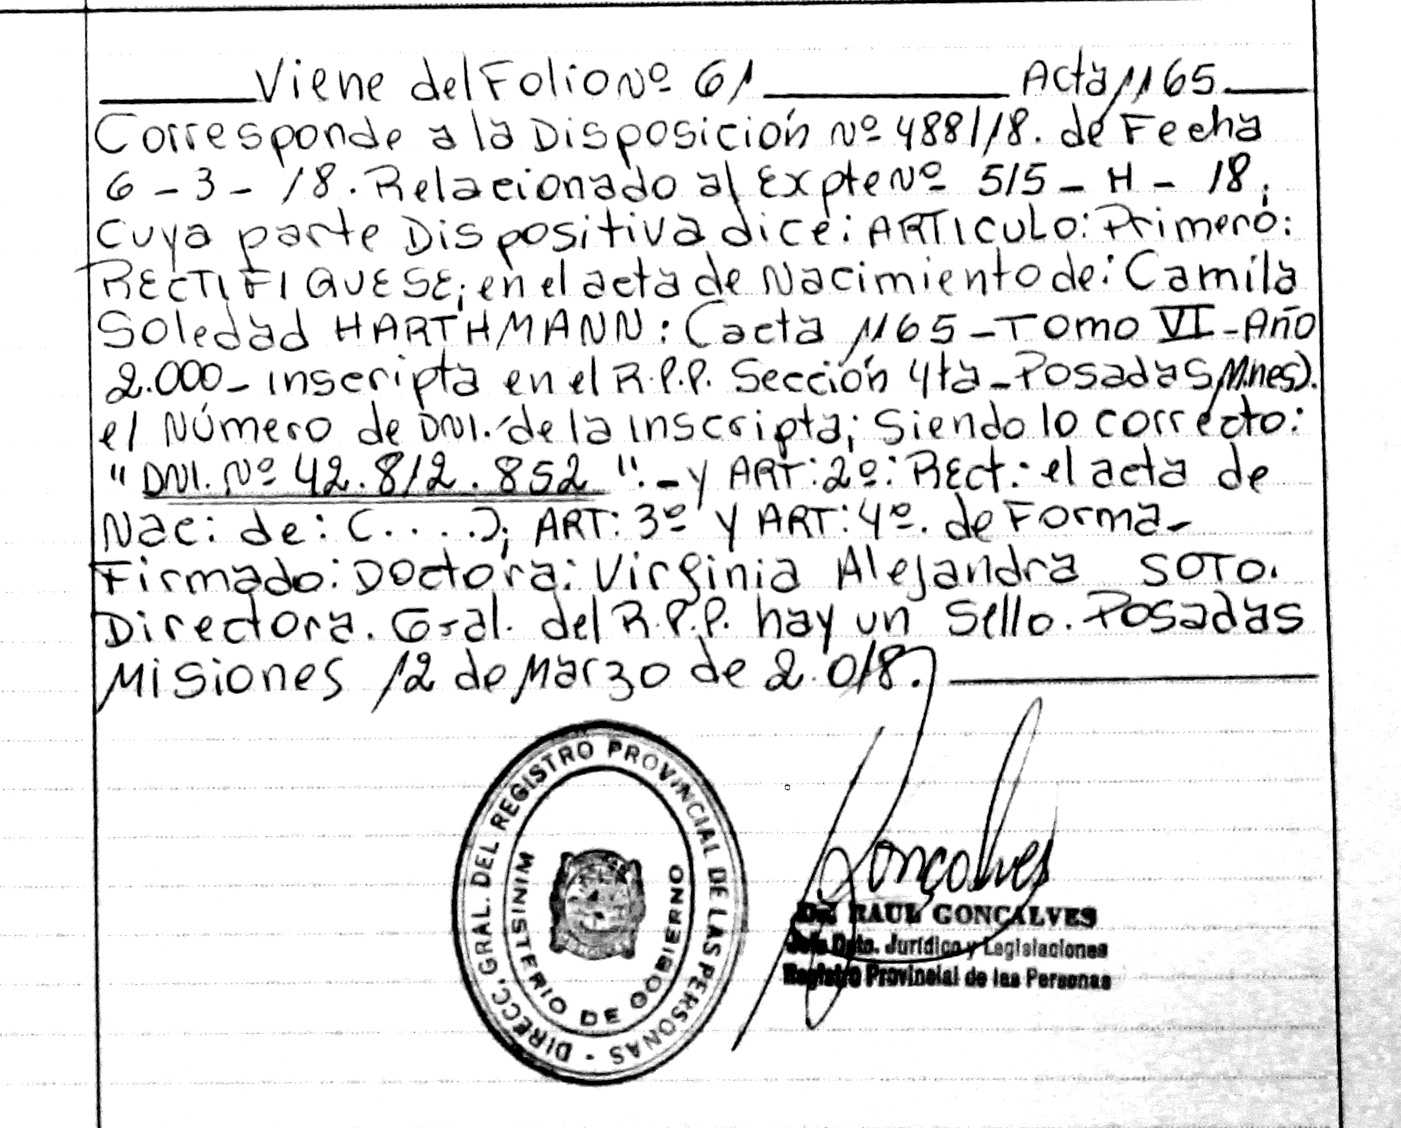 Viene del Folio Nº 61 Acta 1165
Corresponde a la Disposición Nº 488/18. de Fecha
6-3-18. Relacionado al Expte Nº 515-H-18;
Cuya parte Dispositiva dice: ARTICULO: Primero:
RECTIFIQUESE; en el acta de Nacimiento de: Camila
Soledad HARTHMANN: (acta 1165-Tomo VI-Año
2.000- inscripta en el R.P.P. Sección 4ta-Posadas, Mnes).
el Número de DNI. de la inscripta; Siendo lo correcto:
"DNI. Nº 42.812.852".- y ART: 2º: Rect: el acta de
Nac: de: (....); ART: 3º y ART: 4º. de Forma-
Firmado: Doctora: Virginia Alejandra SOTO.
Directora. Gral. del R.P.P. hay un Sello. Posadas
Misiones 12 de Marzo de 2.018.
DIRECC. GRAL. DEL REGISTRO PROVINCIAL DE LAS PERSONAS -
MINISTERIO DE GOBIERNO
Gonçalves
Dr. RAUL GONÇALVES
Jefe Dpto. Jurídico y Legislaciones
Registro Provincial de las Personas